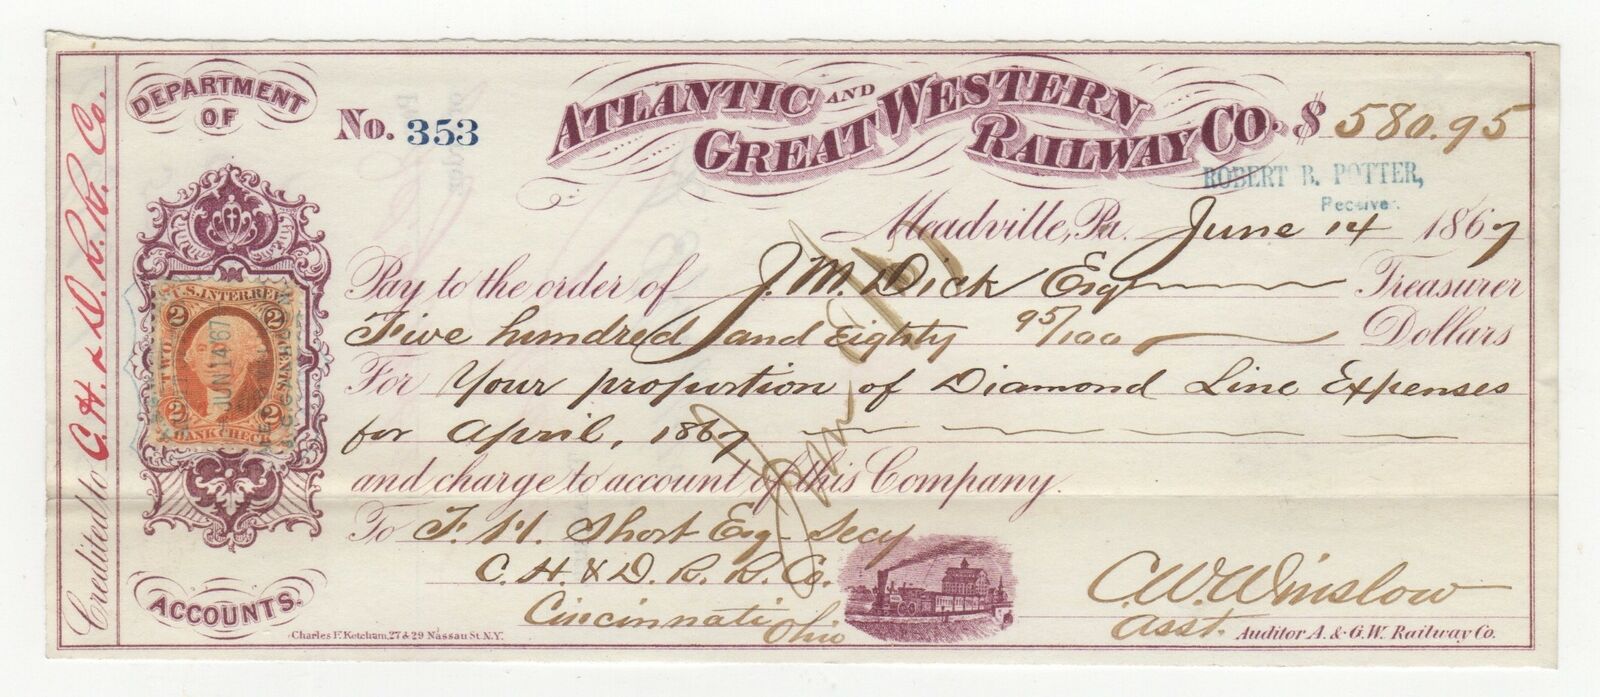 Credited to C. H. & D. R. R. Co.
DEPARTMENT
OF
ACCOUNTS.
No. 353
ATLANTIC AND
GREAT WESTERN
RAILWAY CO.
$ 580.95
ROBERT B. POTTER,
Receiver.
Meadville, Pa. June 14 1867
Pay to the order of J. M. Dick Esq Treasurer
Five hundred and Eighty 95/100 Dollars
For Your proportion of Diamond Line Expenses
for April, 1867
and charge to account of this Company.
To F. H. Short Esq Secy
C. H. & D. R. R. Co.
Cincinnati Ohio
C. W. Winslow
Asst. Auditor A. & G. W. Railway Co.
Charles F. Ketcham, 27 & 29 Nassau St. N.Y.
U.S. INTER. REV.
2 2
TWO CENTS
JUN 14 '67
2 2
BANK CHECK